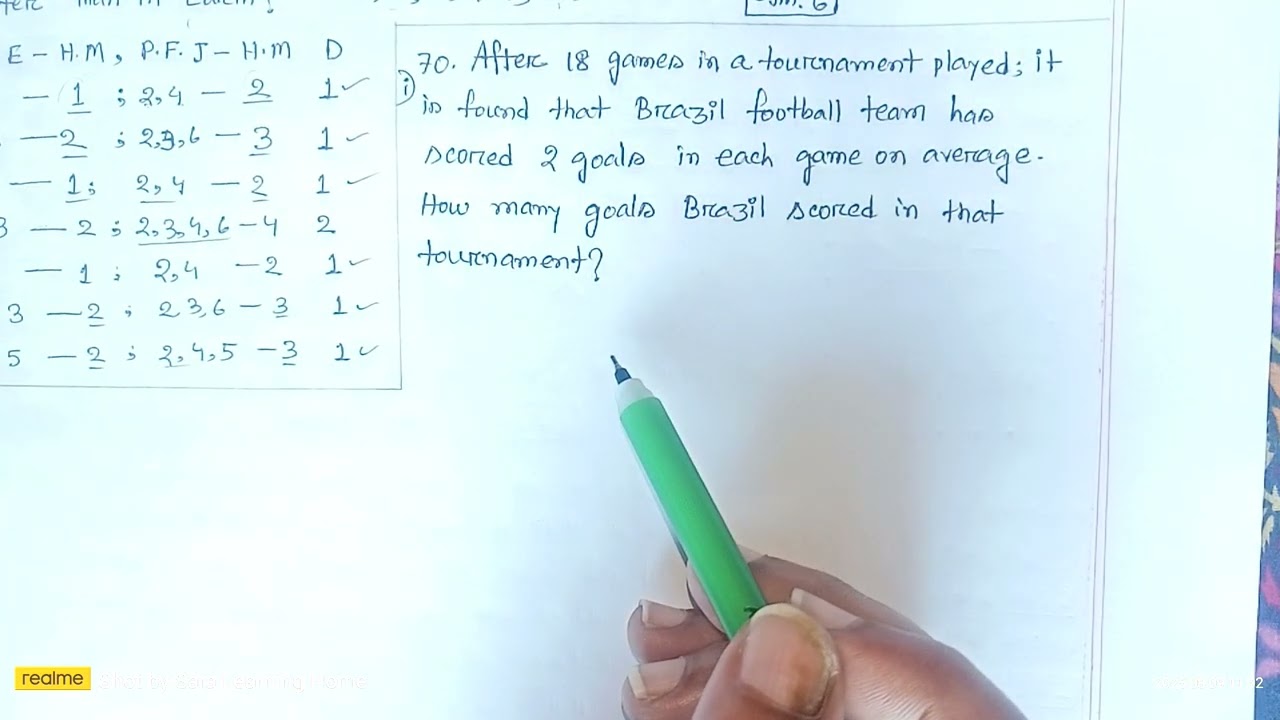 E - H.M, P.F. J - H.M D
- 1 ; 2,4 - 2 1 ✓
- 2 ; 2,3,6 - 3 1 ✓
- 1; 2,4 - 2 1 ✓
3 - 2 ; 2,3,4,6 - 4 2
- 1 ; 2,4 - 2 1 ✓
3 - 2 ; 2 3,6 - 3 1 ✓
5 - 2 ; 2,4,5 - 3 1 ✓
70. After 18 games in a tournament played; it
i) is found that Brazil football team has
scored 2 goals in each game on average.
How many goals Brazil scored in that
tournament?
realme
Shot by